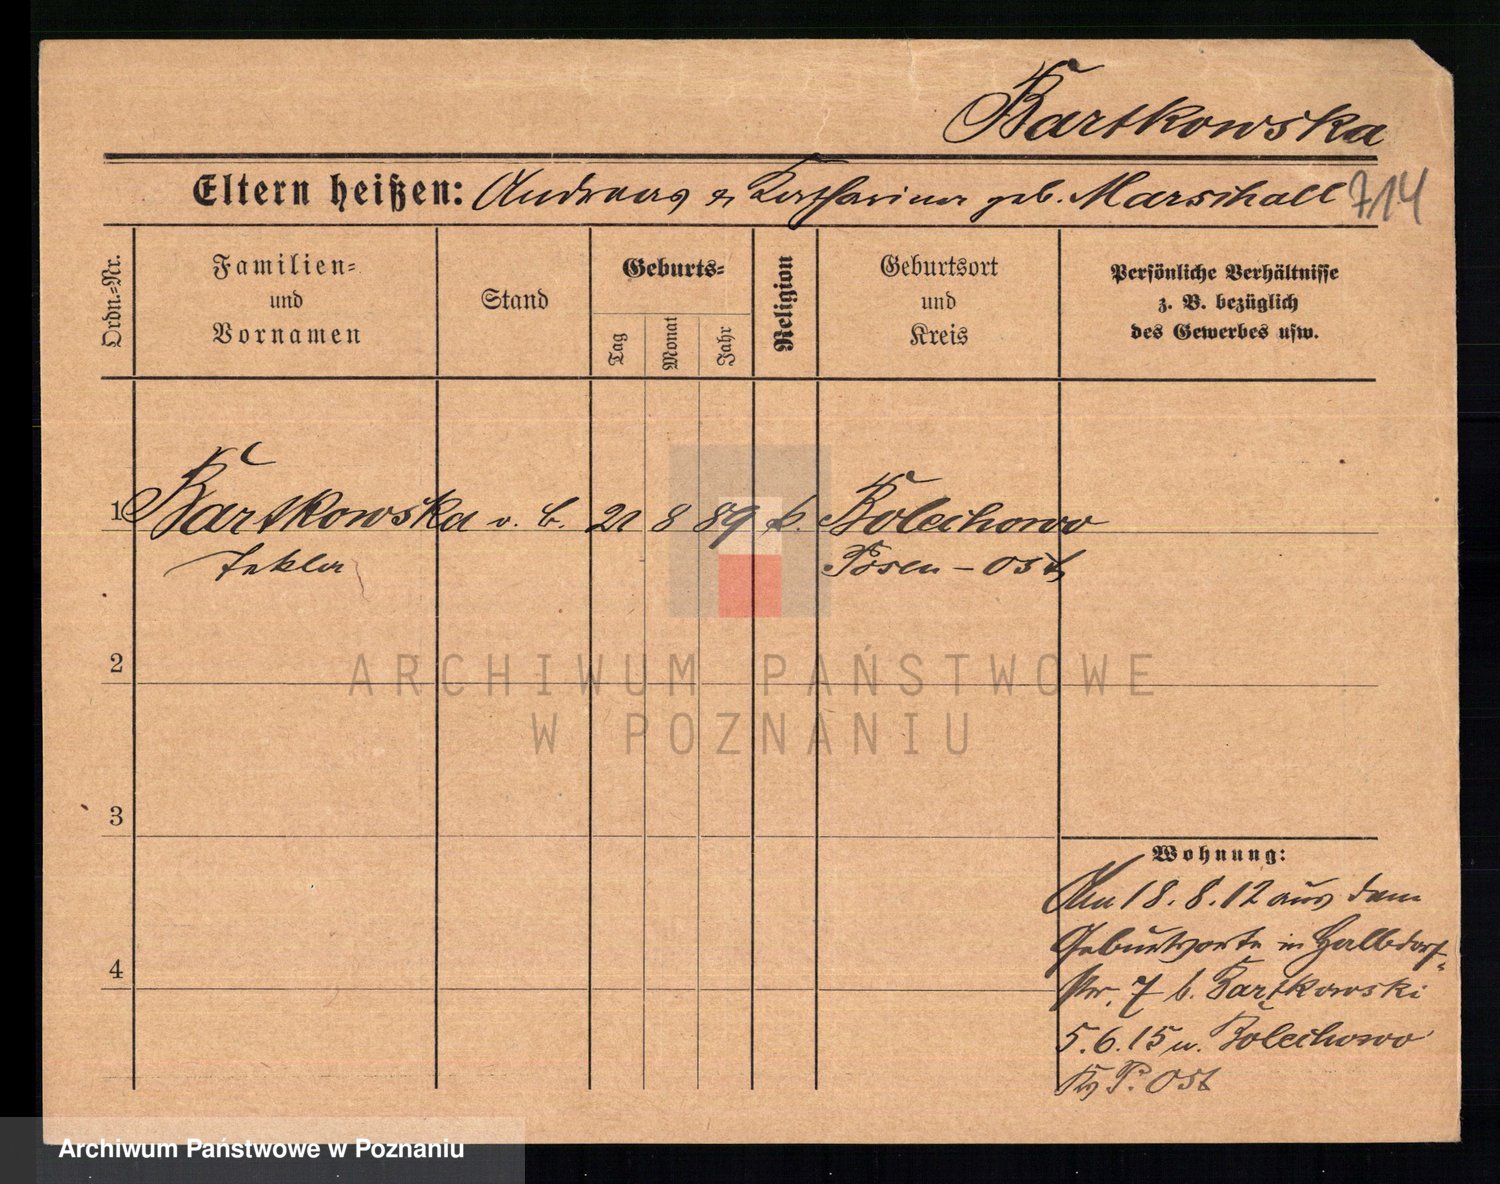 Bartkowska
Eltern heißen: Andreas u Katharina geb. Marschall 714
Ordn.=Nr.
Familien=
und
Vornamen
Stand
Geburts=
Tag
Monat
Jahr
Religion
Geburtsort
und
Kreis
Persönliche Verhältnisse
z. B. bezüglich
des Gewerbes usw.
1 Bartkowska o. b. 21 8 89 k. Bolechowo
Tekla Posen - Ost
2
ARCHIWUM PAŃSTWOWE
W POZNANIU
3
Wohnung:
Am 18.8.12 aus dem
Geburtsorte in Halbdorf-
str. 7 b. Bartkowski
4
5.6.15 n. Bolechowo
Kr P. Ost
Archiwum Państwowe w Poznaniu